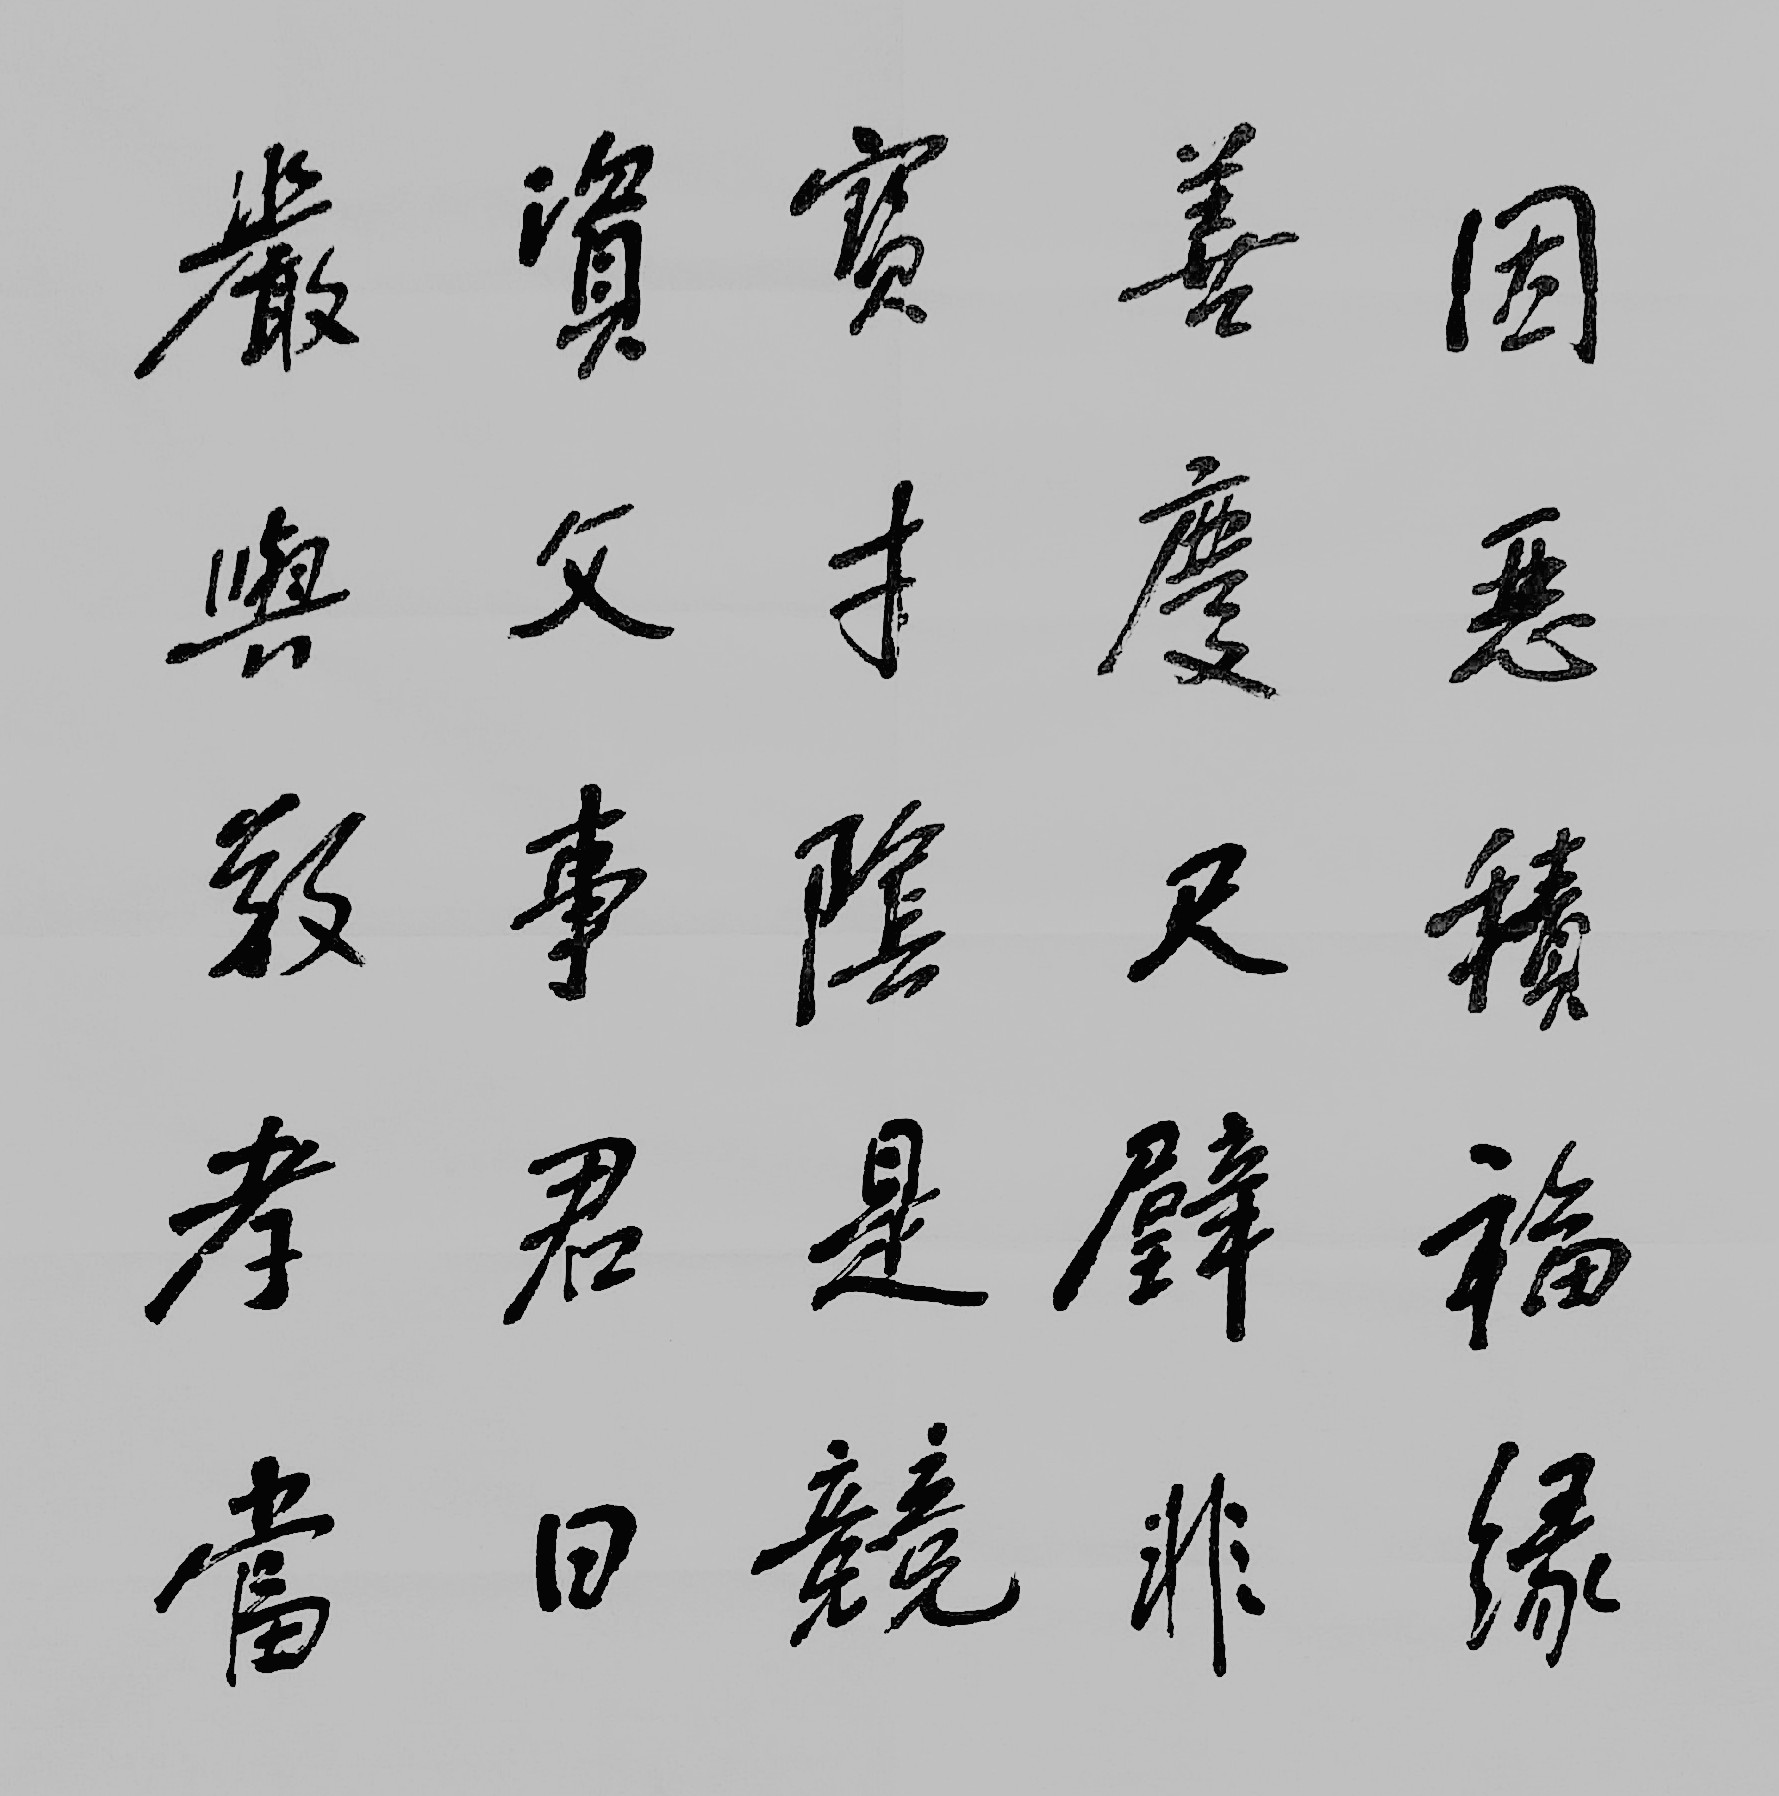 因惡積福緣
善慶尺璧非
寶寸陰是競
資父事君曰
嚴與敬孝當